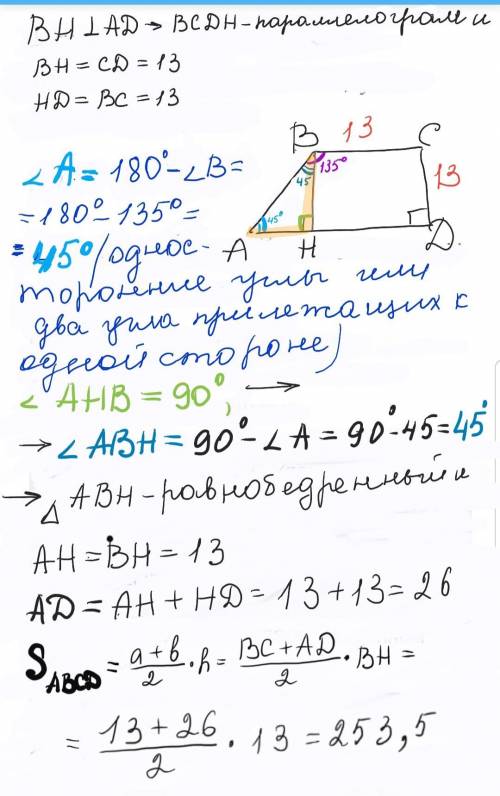 BH⊥AD → BCDH - параллелограмм и
BH = CD = 13
HD = BC = 13
B 13 C
135°
45
13
45°
A H D
∠A = 180° - ∠B =
= 180° - 135° =
= 45° (однос-
торонние углы или
два угла прилежащих к
одной стороне)
∠AHB = 90°, →
→ ∠ABH = 90° - ∠A = 90° - 45 = 45°
→ △ABH - равнобедренный и
AH = BH = 13
AD = AH + HD = 13 + 13 = 26
S ABCD = a + b / 2 · h = BC + AD / 2 · BH =
= 13 + 26 / 2 · 13 = 253,5